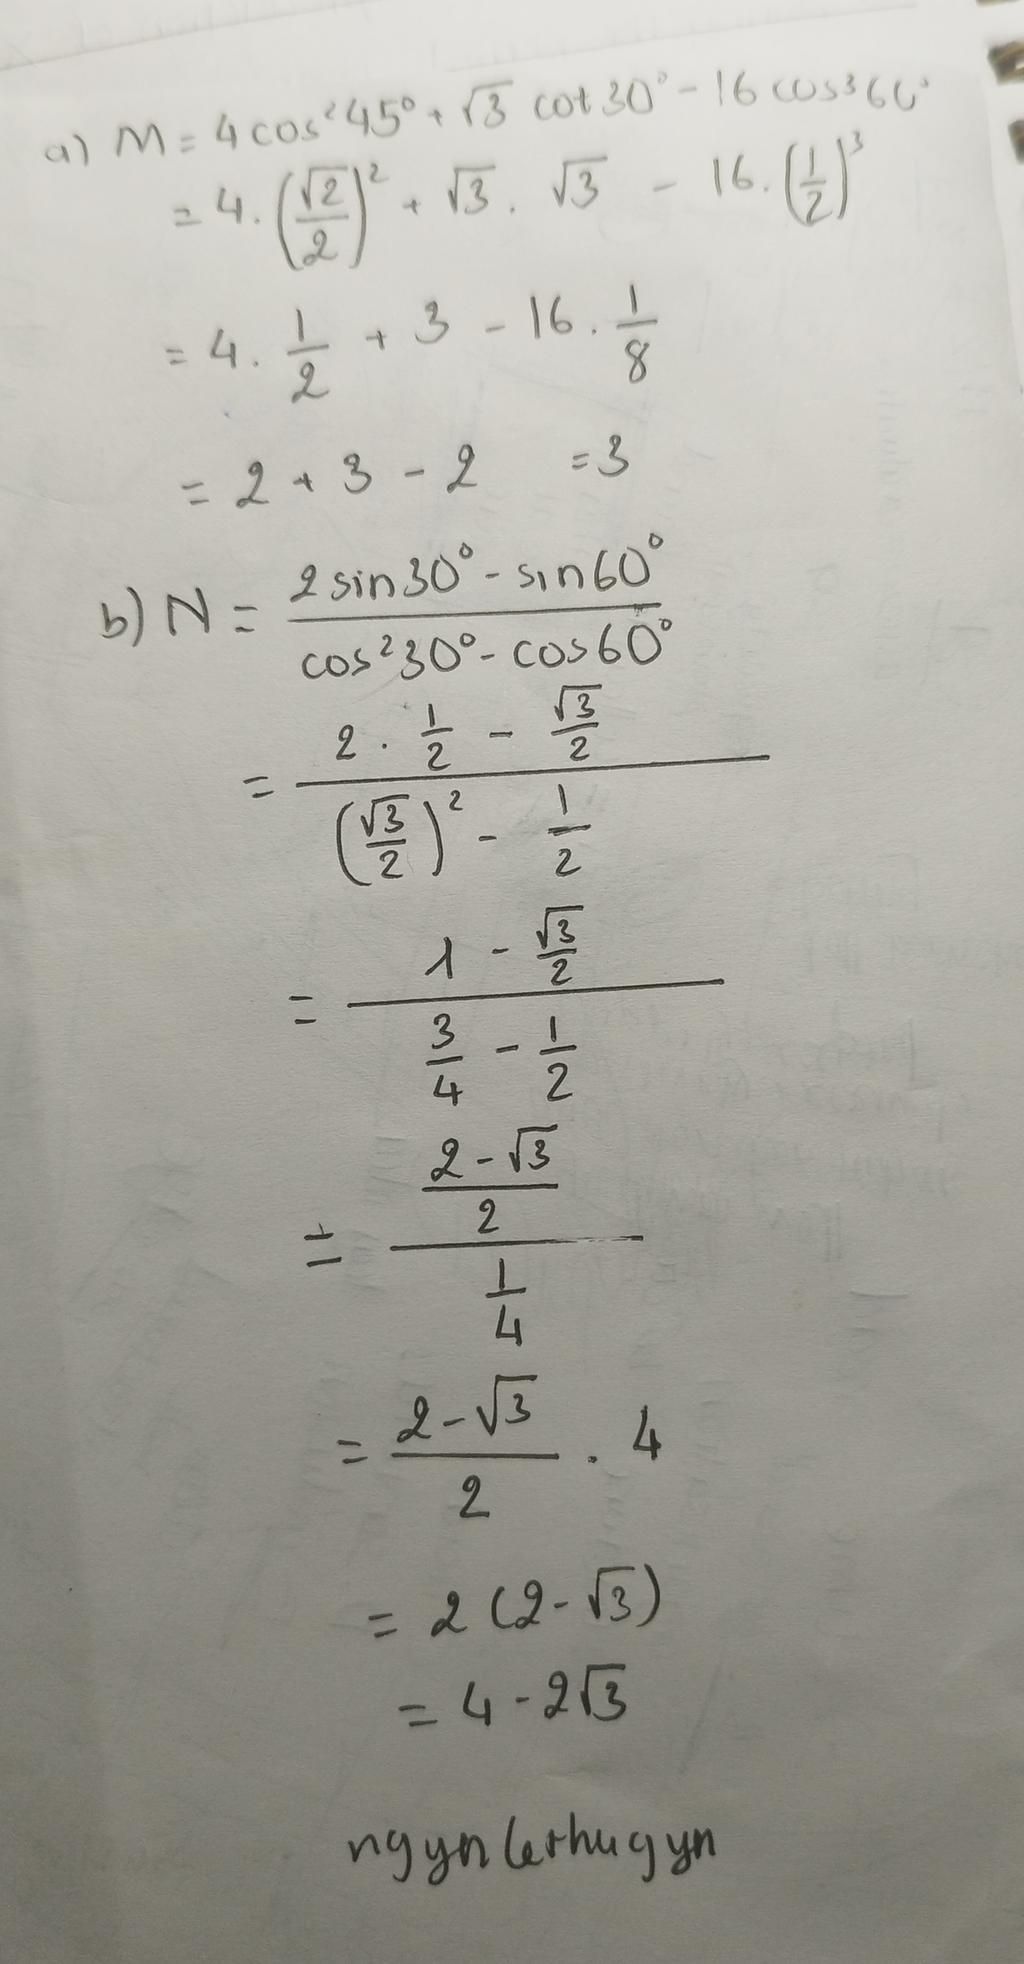 a) M = 4 cos²45° + √3 cot30° - 16 cos³60°
= 4. (√2/2)² + √3. √3 - 16. (1/2)³
= 4. 1/2 + 3 - 16. 1/8
= 2 + 3 - 2 = 3
b) N = (2 sin30° - sin60°)/(cos²30° - cos60°)
= (2. 1/2 - √3/2)/((√3/2)² - 1/2)
= (1 - √3/2)/(3/4 - 1/2)
= ((2 - √3)/2)/(1/4)
= (2 - √3)/2 . 4
= 2 (2 - √3)
= 4 - 2√3